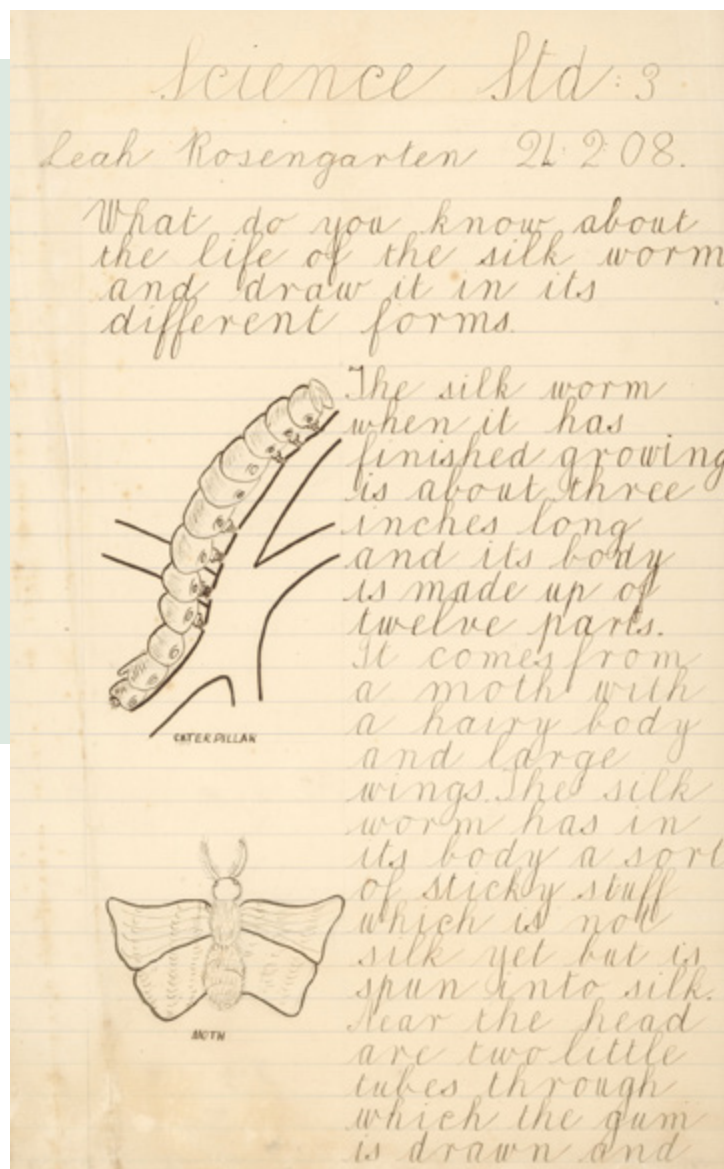 Science Std: 3
Leah Rosengarten 21. 2. 08.
What do you know about
the life of the silk worm
and draw it in its
different forms.
The silk worm
when it has
finished growing
is about three
inches long
and its body
is made up of
twelve parts.
It comes from
a moth with
a hairy body
and large
wings. The silk
worm has in
its body a sort
of sticky stuff
which is not
silk yet but is
spun into silk.
Near the head
are two little
tubes through
which the gum
is drawn and
CATERPILLAR
MOTH